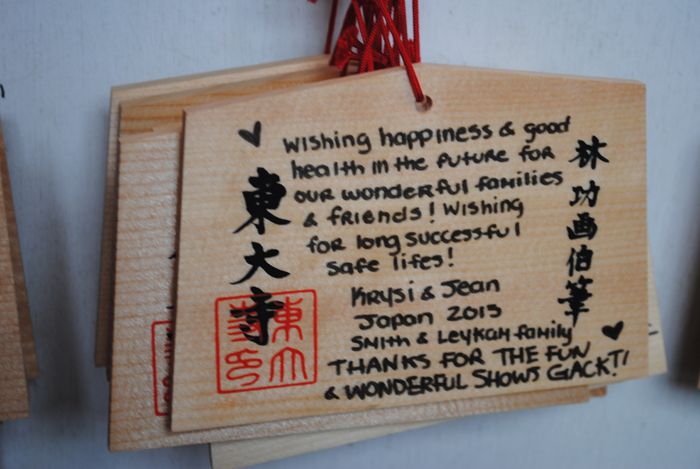 Wishing happiness & good
health in the future for
our wonderful families
& friends! Wishing
for long successful
safe lifes!
Krysi & Jean
Japan 2015
Smith & Leykam family
THANKS FOR THE FUN
& WONDERFUL SHOWS GACKT!
東大寺
林功画伯筆